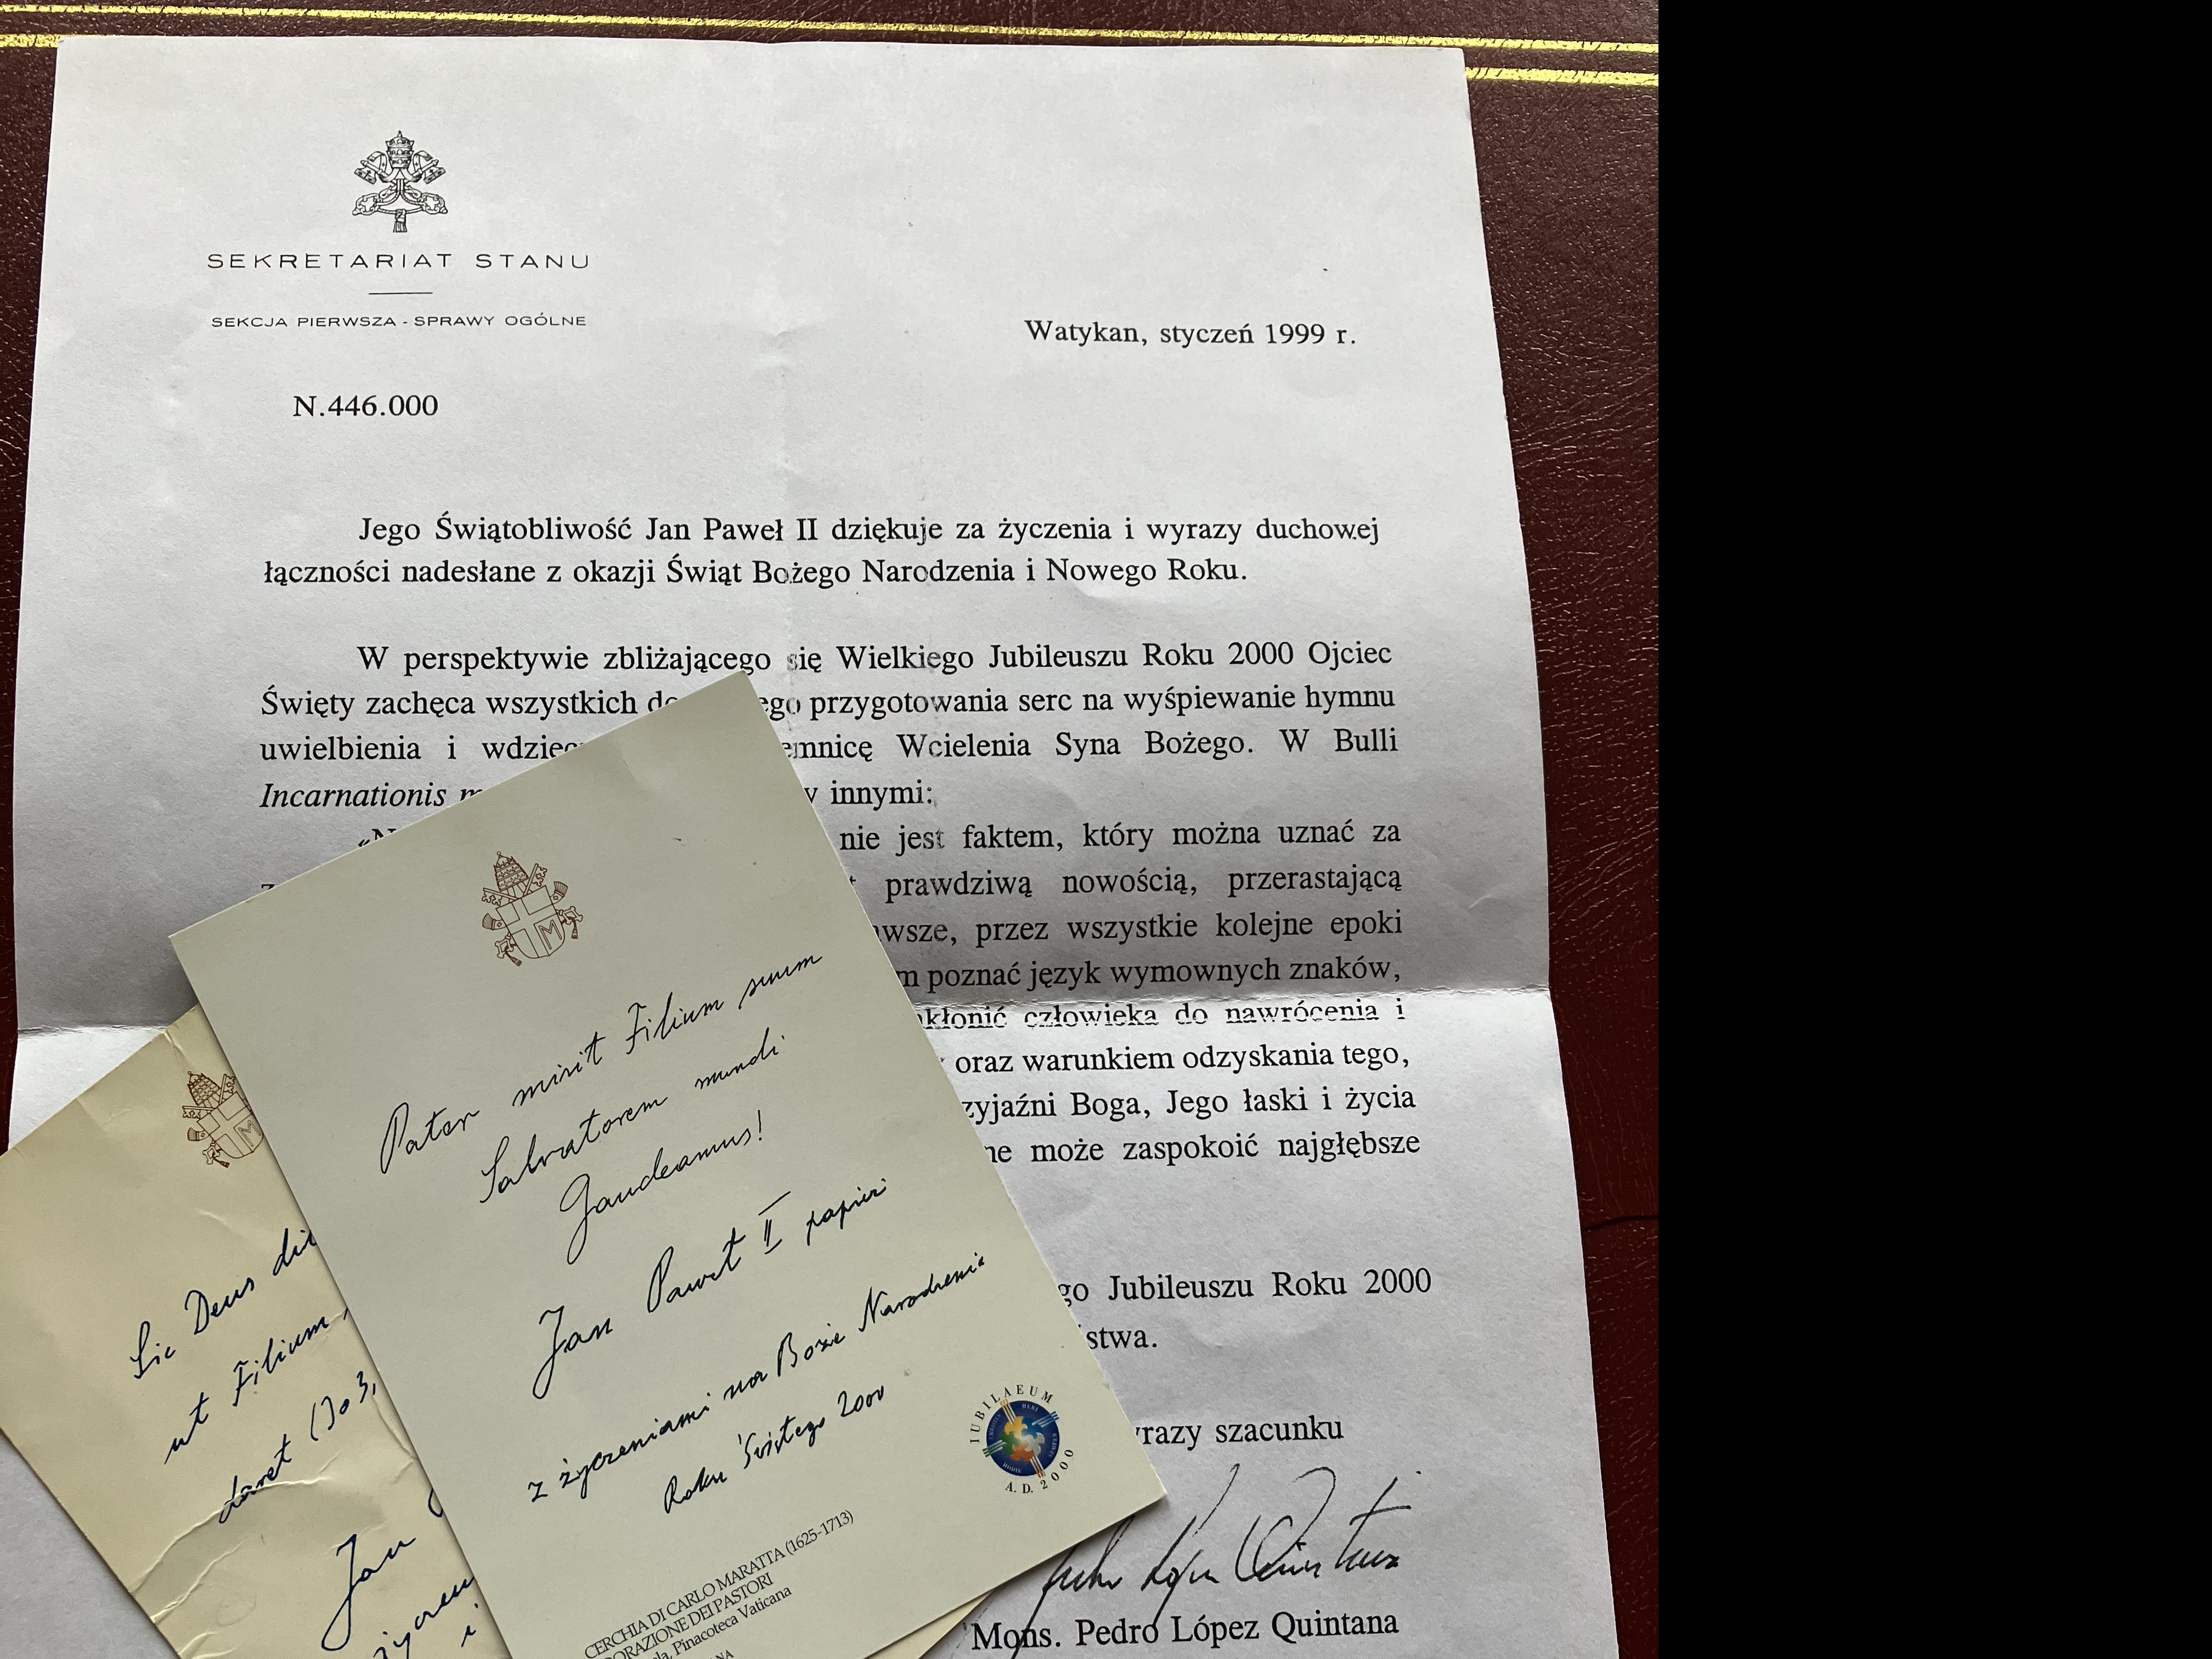 SEKRETARIAT STANU
SEKCJA PIERWSZA - SPRAWY OGÓLNE
Watykan, styczeń 1999 r.
N.446.000
Jego Świątobliwość Jan Paweł II dziękuje za życzenia i wyrazy duchowej
łączności nadesłane z okazji Świąt Bożego Narodzenia i Nowego Roku.
W perspektywie zbliżającego się Wielkiego Jubileuszu Roku 2000 Ojciec
Święty zachęca wszystkich do ego przygotowania serc na wyśpiewanie hymnu
uwielbienia i wdzięc emnicę Wcielenia Syna Bożego. W Bulli
Incarnationis m y innymi:
«N nie jest faktem, który można uznać za
z prawdziwą nowością, przerastającą
wsze, przez wszystkie kolejne epoki
m poznać język wymownych znaków,
kłonić człowieka do nawrócenia i
oraz warunkiem odzyskania tego,
zyjaźni Boga, Jego łaski i życia
ne może zaspokoić najgłębsze
go Jubileuszu Roku 2000
stwa.
yrazy szacunku
Mons. Pedro López Quintana
Pater misit Filium suum
Salvatorem mundi
Gaudeamus!
Jan Paweł II papież
z życzeniami na Boże Narodzenie
Roku Świętego 2000
IUBILAEUM
A. D. 2000
CERCHIA DI CARLO MARATTA (1625-1713)
DORAZIONE DEI PASTORI
ola, Pinacoteca Vaticana
ANA
Sic Deus dil
ut Filium
daret (Jo 3,
Jan
życzen
i